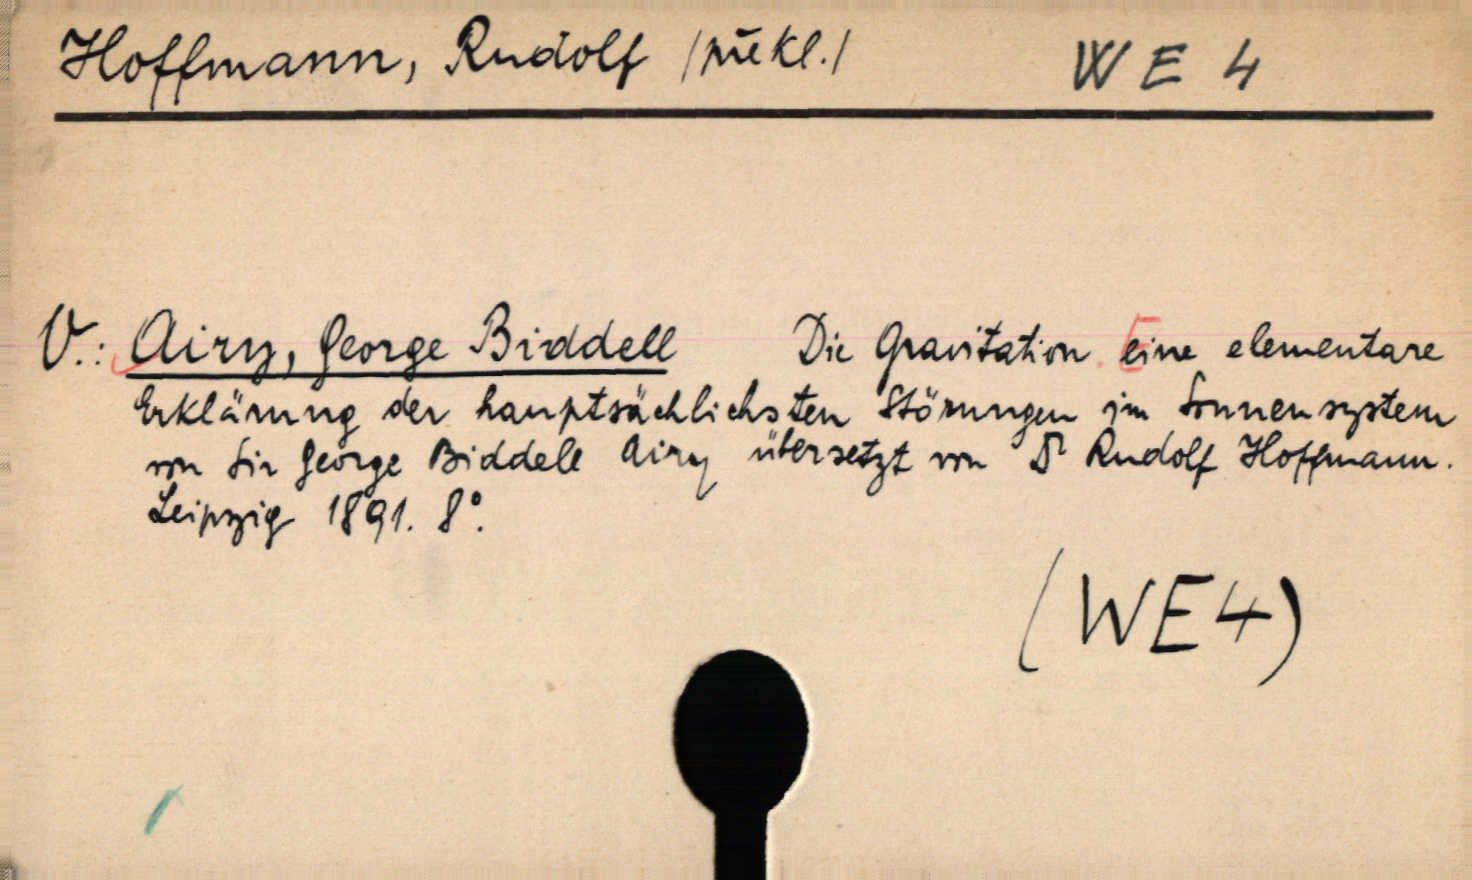 Hoffmann, Rudolf /překl./ WE 4
V.: Airy, George Biddell Die Gravitation. Eine elementare
Erklärung der hauptsächlichsten Störungen im Sonnensystem
von Sir George Biddell Airy übersetzt von Dr Rudolf Hoffmann.
Leipzig 1891. 8°.
(WE4)